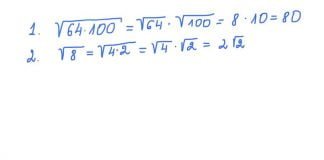 1. √64·100 = √64 · √100 = 8 · 10 = 80
2. √8 = √4·2 = √4 · √2 = 2√2